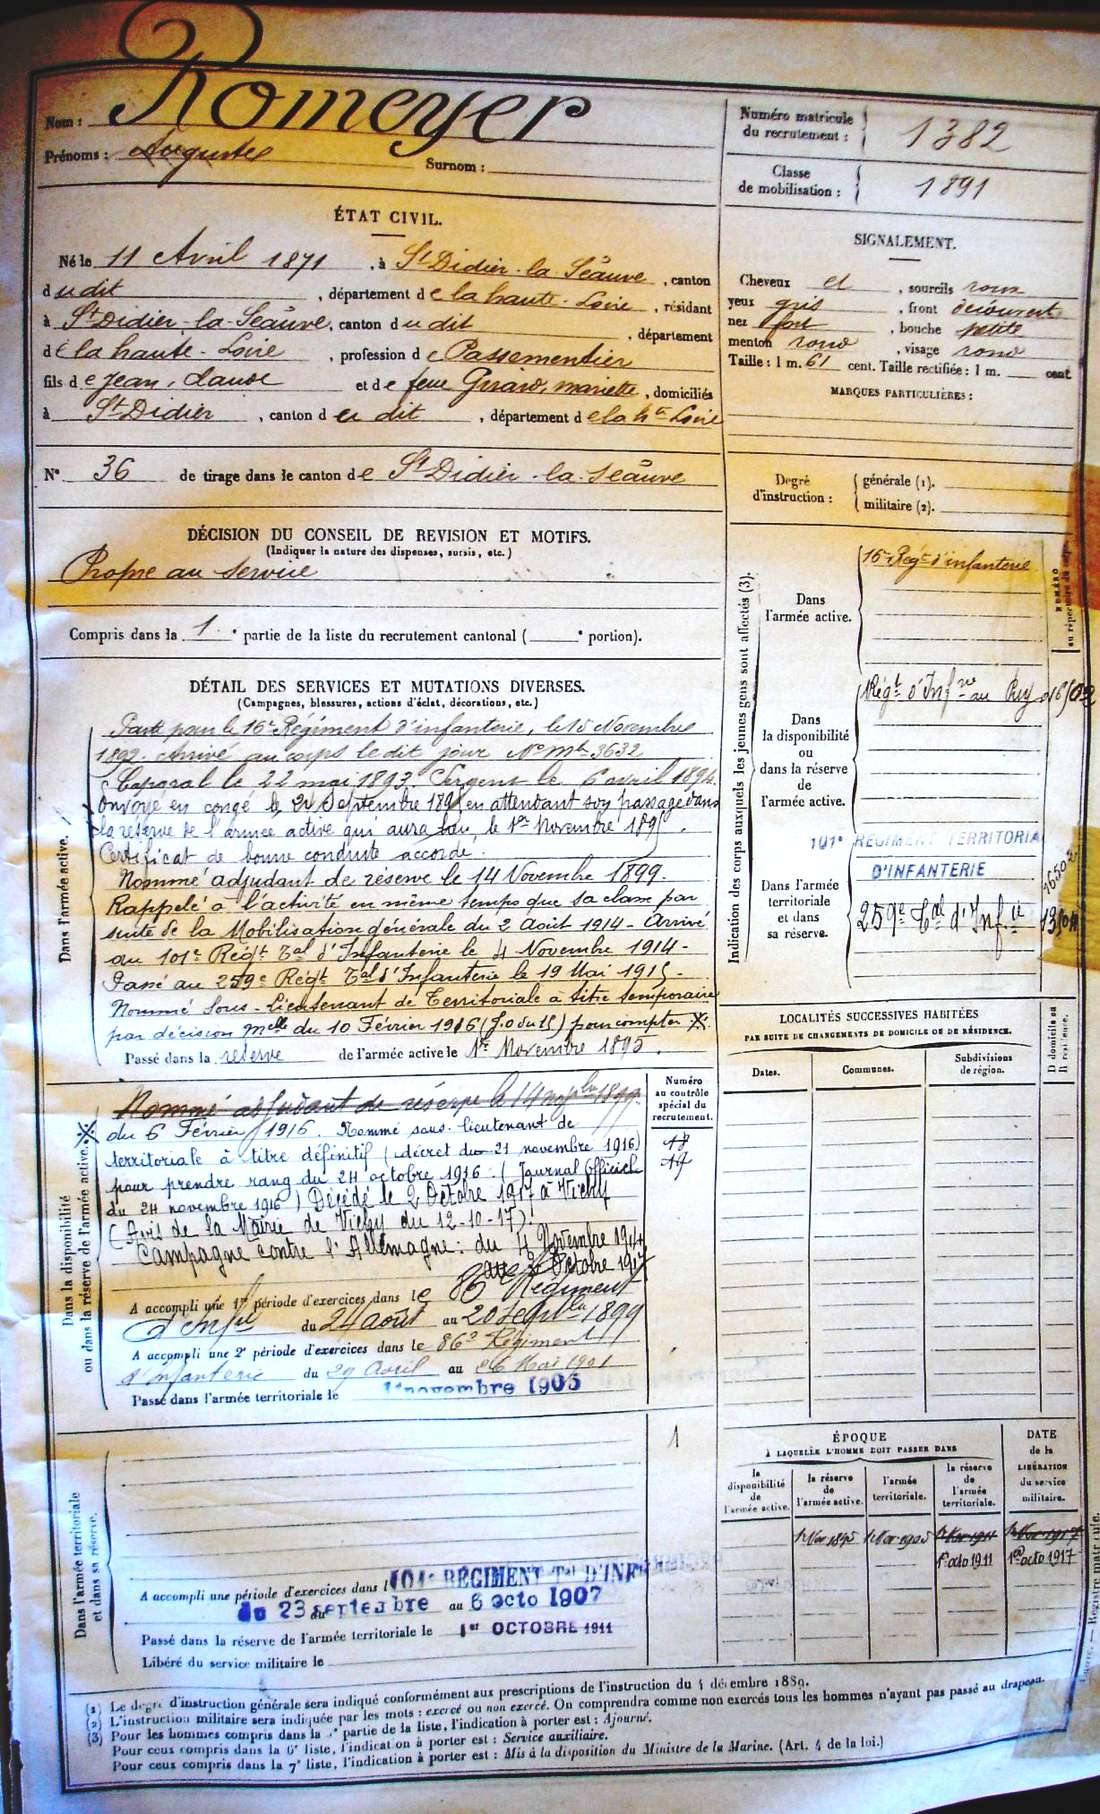 Nom : Romeyer
Prénoms : Auguste Surnom :
Numéro matricule du recrutement : 1382
Classe de mobilisation : 1891
ÉTAT CIVIL.
Né le 11 Avril 1871, à St Didier-la-Séauve, canton
dudit, département de la haute-Loire, résidant
à St Didier-la-Séauve, canton dudit, département
de la haute-Loire, profession de Passementier
fils de Jean, claude et de feue Girard, mariette, domiciliés
à St Didier, canton du dit, département de la hte Loire
N° 36 de tirage dans le canton de St Didier-la-Séauve
SIGNALEMENT.
Cheveux et, sourcils roux
yeux gris, front découvert
nez fort, bouche petite
menton rond, visage rond
Taille : 1 m. 61 cent. Taille rectifiée : 1 m. cent.
MARQUES PARTICULIÈRES :
Degré d'instruction :
générale (1).
militaire (2).
DÉCISION DU CONSEIL DE REVISION ET MOTIFS.
(Indiquer la nature des dispenses, sursis, etc.)
Propre au service
Compris dans la 1e partie de la liste du recrutement cantonal ( e portion).
DÉTAIL DES SERVICES ET MUTATIONS DIVERSES.
(Campagnes, blessures, actions d'éclat, décorations, etc.)
Dans l'armée active.
Parti pour le 16e Régiment d'infanterie, le 15 Novembre
1892. Arrivé au corps le dit jour N° Mle 3632
Caporal le 22 mai 1893 Sergent le 6 avril 1894.
Envoyé en congé le 21 Septembre 1895 en attendant son passage dans
la réserve de l'armée active qui aura lieu le 1er Novembre 1895.
Certificat de bonne conduite accordé.
Nommé adjudant de réserve le 14 Novembre 1899.
Rappelé à l'activité en même temps que sa classe par
suite de la Mobilisation générale du 2 Août 1914 - Arrivé
au 101e Régt Tal d'Infanterie le 4 Novembre 1914 -
Passé au 259e Régt Tal d'Infanterie le 19 Mai 1915 -
Nommé Sous-Lieutenant de Territoriale à titre temporaire
par décision Melle du 10 Février 1916 (J.O du 15) pour compter X
Passé dans la réserve de l'armée active le 1er Novembre 1895.
Dans la disponibilité
ou dans la réserve de l'armée active.
Numéro au contrôle spécial du recrutement.
Nommé adjudant de réserve le 14 novembre 1899.
X du 6 Février 1916. Nommé sous lieutenant de
territoriale à titre définitif (décret du 21 novembre 1916)
pour prendre rang du 24 octobre 1916. (Journal Officiel
du 24 novembre 1916) Décédé le 2 Octobre 1917 à Vichy
(Avis de la Mairie de Vichy du 12-10-17).
Campagne contre l'Allemagne : du 4 Novembre 1914
au 2 Octobre 1917
A accompli une 1re période d'exercices dans le 86e Régiment
d'Infie du 24 août au 20 Septbre 1899
A accompli une 2e période d'exercices dans le 86e Régiment
d'infanterie du 29 Avril au 26 Mai 1901
Passé dans l'armée territoriale le 1er novembre 1905
1
Dans l'armée territoriale
et dans sa réserve.
A accompli une période d'exercices dans l 101e RÉGIMENT Tal D'INF
du 23 septembre au 6 octo 1907
Passé dans la réserve de l'armée territoriale le 1er OCTOBRE 1911
Libéré du service militaire le
Indication des corps auxquels les jeunes gens sont affectés (3).
NUMÉRO au répertoire du corps
Dans l'armée active.
16e Régt d'infanterie
Dans la disponibilité ou dans la réserve de l'armée active.
Régt d'Infrie au Puy
Dans l'armée territoriale et dans sa réserve.
101e RÉGIMENT TERRITORIAL
D'INFANTERIE
259e Tal d'Infie
LOCALITÉS SUCCESSIVES HABITÉES
PAR SUITE DE CHANGEMENTS DE DOMICILE OU DE RÉSIDENCE.
Dates. Communes. Subdivisions de région. D domicile ou R résidence.
ÉPOQUE
À LAQUELLE L'HOMME DOIT PASSER DANS
DATE de la LIBÉRATION du service militaire.
la disponibilité de l'armée active.
la réserve de l'armée active.
l'armée territoriale.
la réserve de l'armée territoriale.
1r Nov 1895 1r Nov 1905 1r Nov 1911 1r Nov 1917
1er octo 1911 1er octo 1917
(1) Le degré d'instruction générale sera indiqué conformément aux prescriptions de l'instruction du 4 décembre 1889.
(2) L'instruction militaire sera indiquée par les mots : exercé ou non exercé. On comprendra comme non exercés tous les hommes n'ayant pas passé au drapeau.
(3) Pour les hommes compris dans la 2e partie de la liste, l'indication à porter est : Ajourné.
Pour ceux compris dans la 6e liste, l'indication à porter est : Service auxiliaire.
Pour ceux compris dans la 7e liste, l'indication à porter est : Mis à la disposition du Ministre de la Marine. (Art. 4 de la loi.)
Registre matricule.